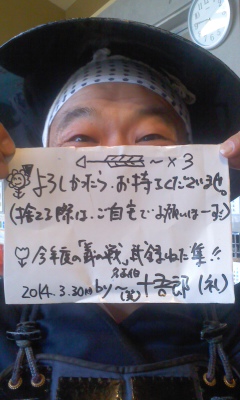 ~×3
よろしかったら、お持ちくださいませ。
(捨てる際は、ご自宅でお願いします)
今年度の「義の戦」武録ねた集!!
2014.3.30 by~ 十吾郎(礼)